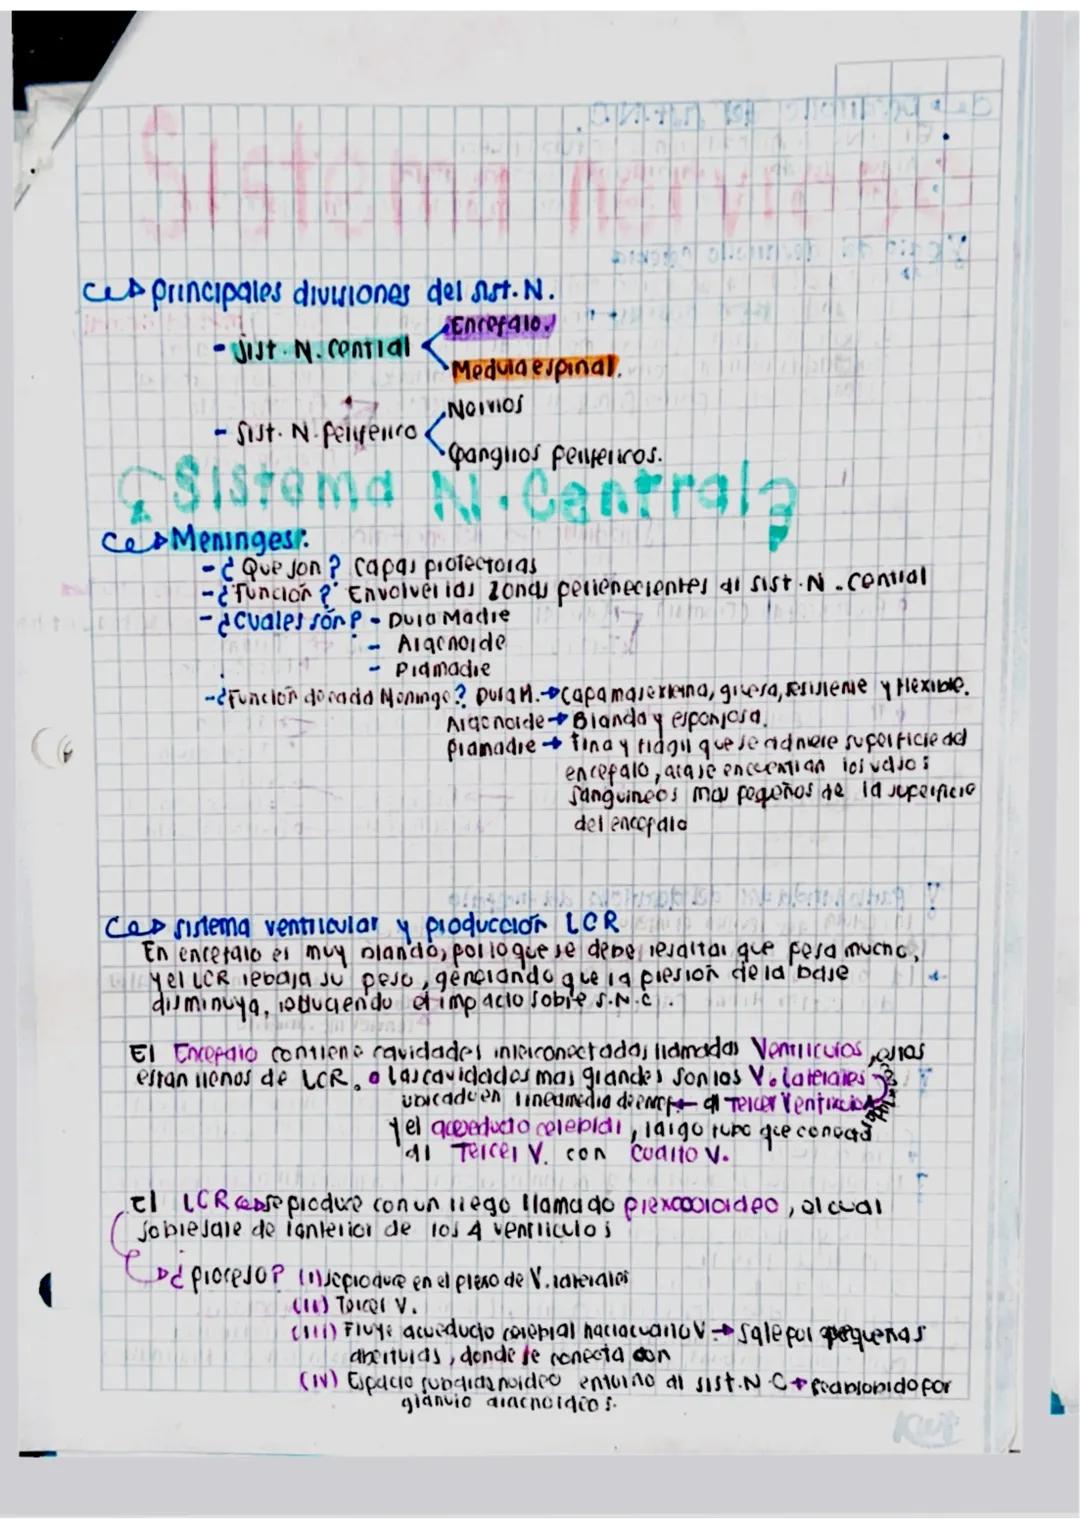 Sistema nervioso
Principales divisiones del sist. N.
- Sist. N. central
Encefalo.
Medula espinal.
- Sist. N. periferico
Nervios
Ganglios perifericos.
Sistema N. Central
Meninges:
- ¿Que son? capas protectoras
- ¿Función? Envolver las zonas pertenecientes al sist. N. central
- ¿Cuales són? - Dura Madre
- Aracnoide
- Piamadre
- ¿Función de cada Meninge? Dura M. → Capa mas externa, gruesa, resistente y flexible.
Aracnoide → Blanda y esponjosa.
piamadre → fina y fragil que se adhiere superficie del
encefalo, aca se encuentran los vasos
sanguineos mas pequeños de la superficie
del encefalo
sistema ventricular y producción LCR
En encefalo es muy blando, por lo que se debe resaltar que pesa mucho,
y el LCR rebaja su peso, generando que la presion de la base
disminuya, reduciendo el impacto sobre S.N.C.
El Encefalo contiene cavidades interconectadas llamadas Ventriculos, estas
estan llenos de LCR. las cavidades mas grandes son los V. laterales
ubicado en linea media de encef ← al Tercer Ventriculo
y el acueducto cerebral, largo tubo que conecta
al Tercer V. con cuarto V.
El LCR se produce con un riego llamado plexo coroideo, el cual
sobresale de lanterior de los 4 ventriculos
¿proceso? (i) se produce en el plexo de V. laterales
(ii) Tercer V.
(iii) Fluye acueducto cerebral hacia cuarto V → sale por pequeñas
aberturas, donde se conecta con
(iv) Espacio subaracnoideo entorno al sist. N. C → reabsorbido por
aracnoideos.